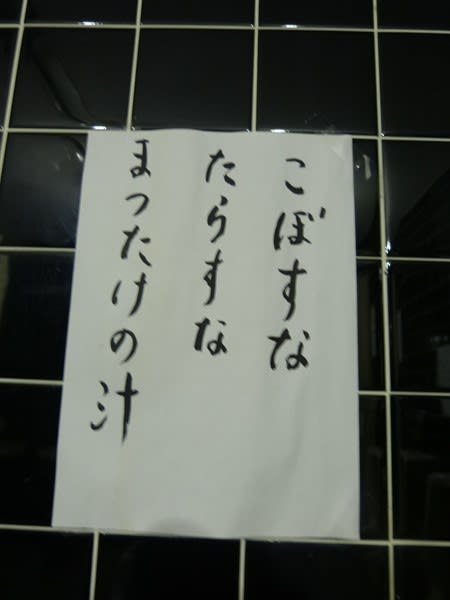 こぼすな
たらすな
まつたけの汁